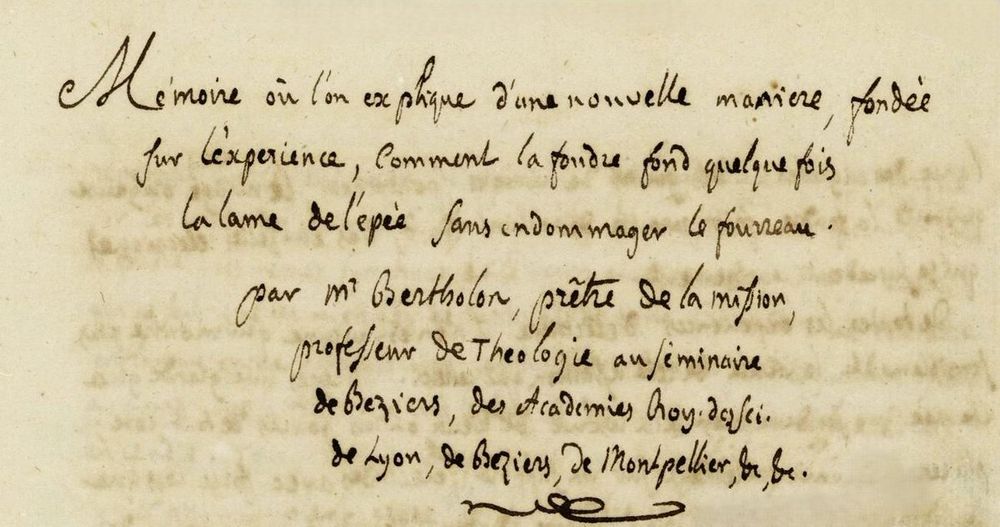 Mémoire où l'on explique d'une nouvelle maniere, fondée
sur l'expérience, Comment la foudre fond quelque fois
la lame de l'épée sans endommager le fourreau.
par mr Bertholon, prêtre de la mission,
professeur de Theologie au séminaire
de Beziers, des Academies Roy. des sci.
de Lyon, de Beziers, de Montpellier, &c, &c.